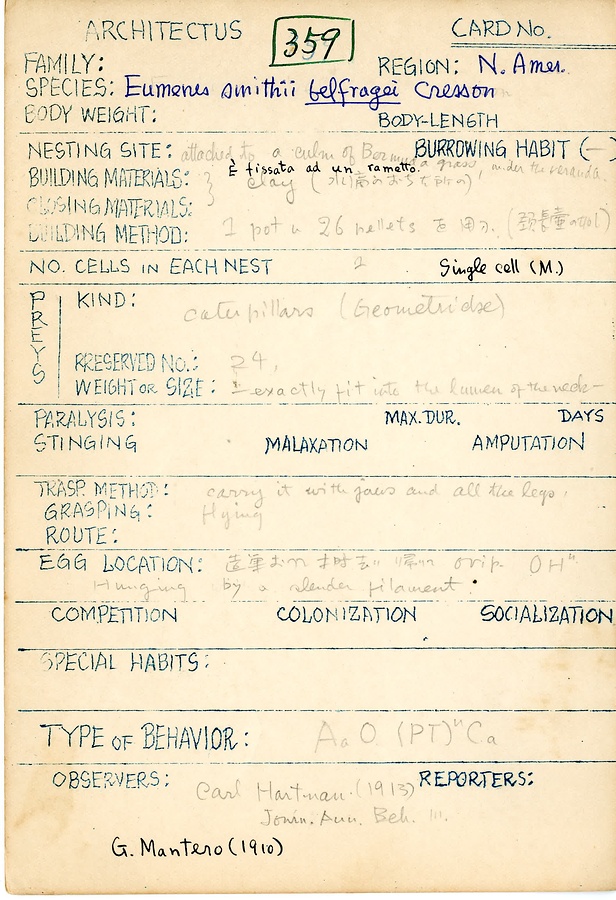 ARCHITECTUS 359 CARD No.
FAMILY: REGION: N. Amer.
SPECIES: Eumenes smithii belfragei Cresson
BODY WEIGHT: BODY-LENGTH
NESTING SITE: attached to a culm of Bermuda grass, under the veranda. BURROWING HABIT (—)
È fissata ad un rametto.
BUILDING MATERIALS: } clay
CLOSING MATERIALS:
BUILDING METHOD: 1 pot n 26 pellets を用フ.
NO. CELLS IN EACH NEST 2 Single cell (M.)
PREYS
KIND: caterpillars (Geometridae)
RRESERVED No.: 24,
WEIGHT OR SIZE: exactly fit into the lumen of the neck—
PARALYSIS: MAX. DUR. DAYS
STINGING MALAXATION AMPUTATION
TRASP. METHOD: carry it with jaws and all the legs,
GRASPING: Flying
ROUTE:
EGG LOCATION: ovip. OH"
Hunging by a slender filament.
COMPETITION COLONIZATION SOCIALIZATION
SPECIAL HABITS:
TYPE OF BEHAVIOR: AaO (PT)ⁿCa
OBSERVERS: Carl Hartman (1913) REPORTERS:
Journ. Ann. Beh. III.
G. Mantero (1910)